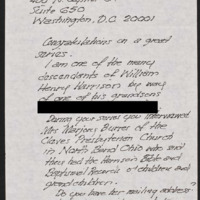 Suite 650
Washington, D.C. 20001
Congratulations on a great
series.
I am one of the many
descendants of William
Henry Harrison by way
of one of his grandsons
During your series you interviewed
Mrs Marjorie Burress of the
Cleves Presbyterian Church
in North Bend Ohio who said
they had the Harrison Bible and
Baptismal Records of children and
grandchildren.
Do you have her mailing address?